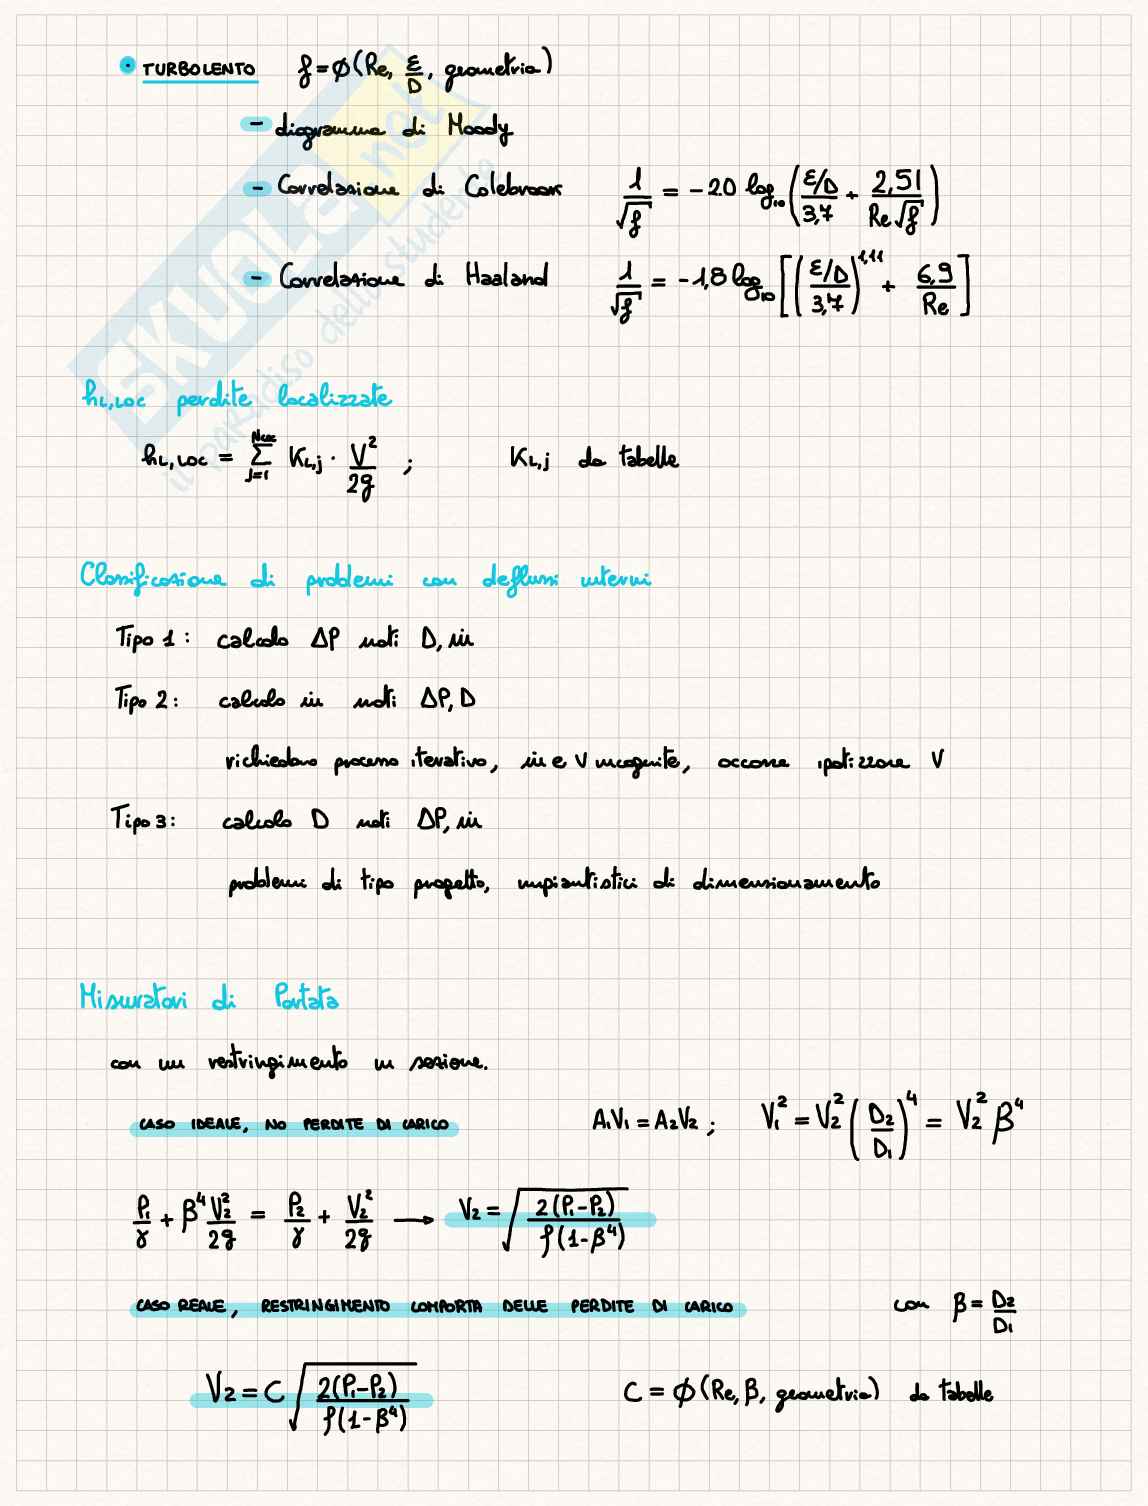 • TURBOLENTO f = φ(Re, ε/D, geometria)
- diagramma di Moody
- Correlazione di Colebrook 1/√f = -2.0 log₁₀((ε/D)/3,7 + 2,51/(Re√f))
- Correlazione di Haaland 1/√f = -1,8 log₁₀[((ε/D)/3,7)^1,11 + 6,9/Re]
hL,LOC perdite localizzate
hL,LOC = Σ_{j=1}^{NLOC} KL,j · V²/2g ; KL,j da tabelle
Classificazione di problemi con deflussi interni
Tipo 1: calcolo ΔP noti D, ṁ
Tipo 2: calcolo ṁ noti ΔP, D
richiedono processo iterativo, ṁ e V incognite, occorre ipotizzare V
Tipo 3: calcolo D noti ΔP, ṁ
problemi di tipo progetto, impiantistici di dimensionamento
Misuratori di Portata
con un restringimento in sezione.
CASO IDEALE, NO PERDITE DI CARICO A₁V₁ = A₂V₂ ; V₁² = V₂²(D₂/D₁)⁴ = V₂² β⁴
P₁/γ + β⁴ V₂²/2g = P₂/γ + V₂²/2g → V₂ = √(2(P₁-P₂)/ρ(1-β⁴))
CASO REALE, RESTRINGIMENTO COMPORTA DELLE PERDITE DI CARICO con β = D₂/D₁
V₂ = C √(2(P₁-P₂)/ρ(1-β⁴)) C = φ(Re, β, geometria) da tabelle
SKUOLA.net
il paradiso dello studente